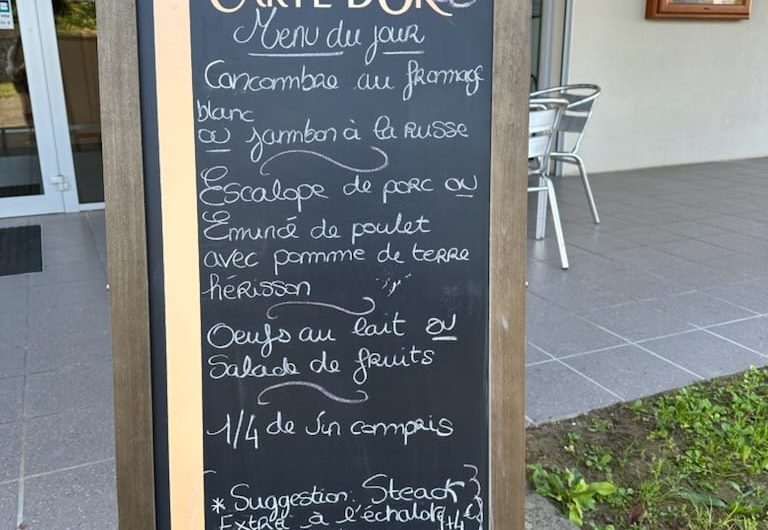 CARTE D'OR
Menu du jour
Concombre au fromage
blanc
ou jambon à la russe
Escalope de porc ou
Emincé de poulet
avec pomme de terre
hérisson
Oeufs au lait ou
Salade de fruits
1/4 de vin compris
* Suggestion: Steack
Extra à l'échalote +4€